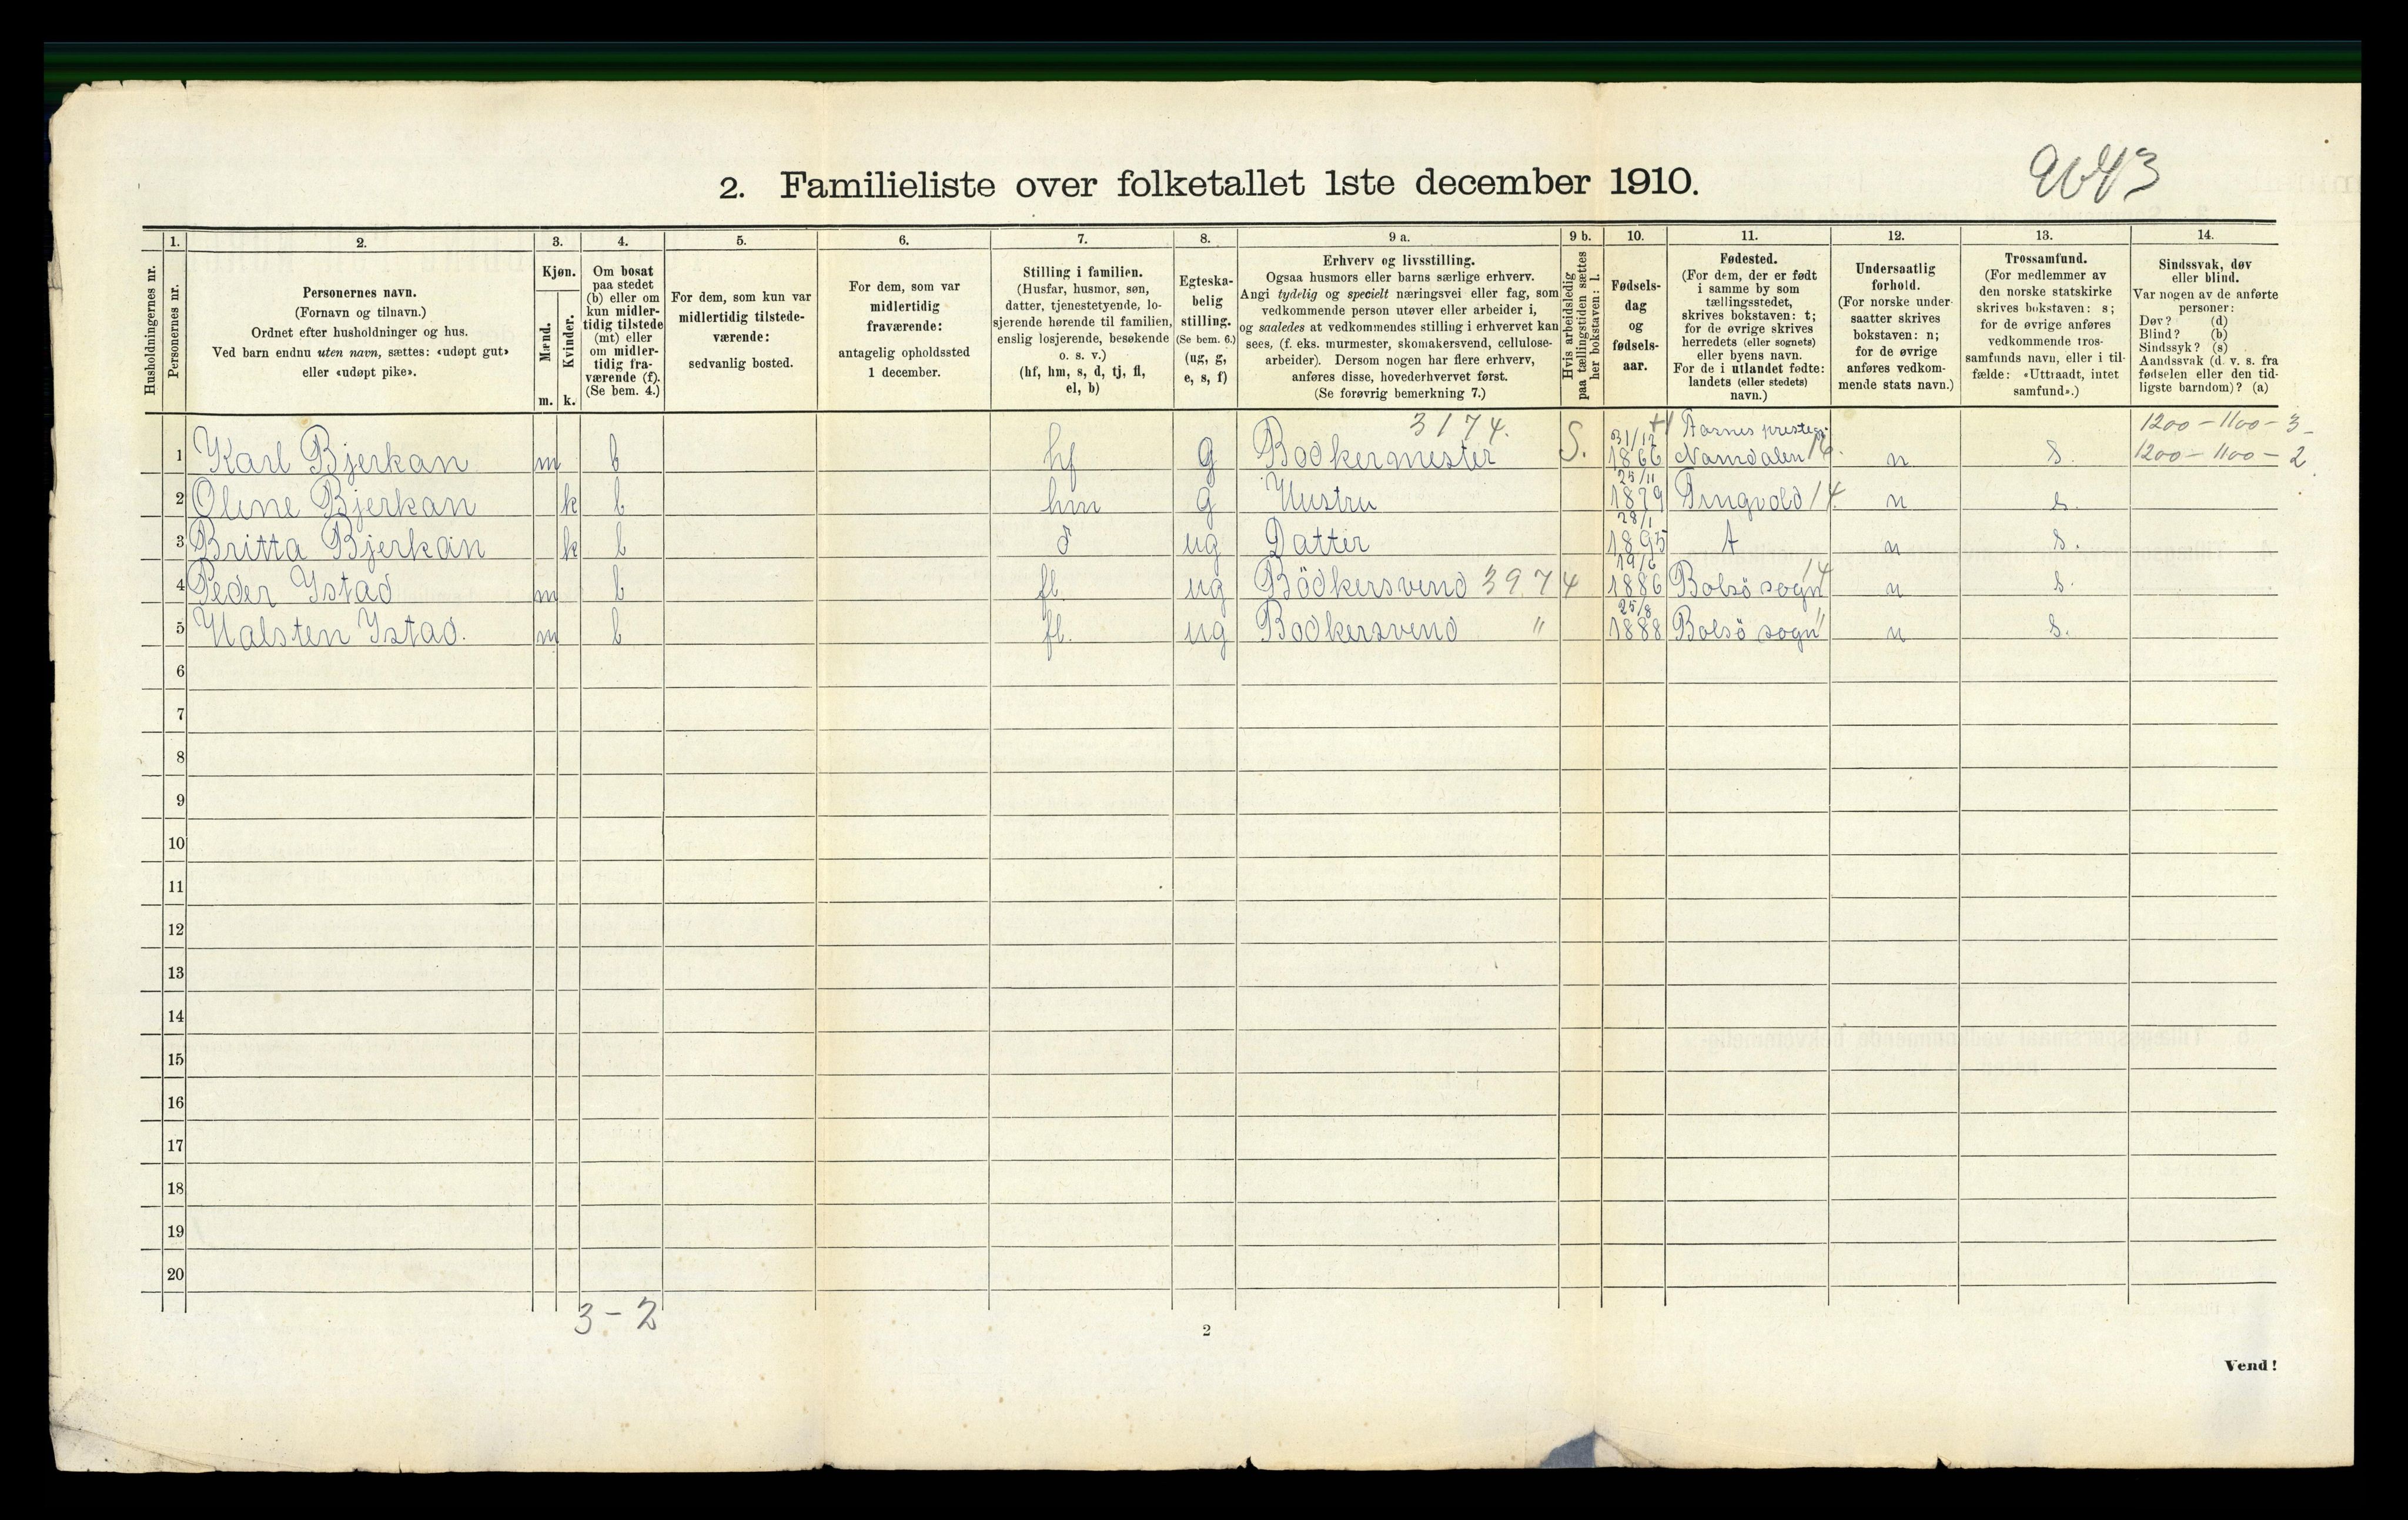 2. Familieliste over folketallet 1ste december 1910.
9643
Husholdningernes nr.
1.
Personernes nr.
2.
Personernes navn.
(Fornavn og tilnavn.)
Ordnet efter husholdninger og hus.
Ved barn endnu uten navn, sættes: «udøpt gut»
eller «udøpt pike».
3.
Kjøn.
Mænd.
Kvinder.
m. k.
4.
Om bosat
paa stedet
(b) eller om
kun midler-
tidig tilstede
(mt) eller
om midler-
tidig fra-
værende (f).
(Se bem. 4.)
5.
For dem, som kun var
midlertidig tilstede-
værende:
sedvanlig bosted.
6.
For dem, som var
midlertidig
fraværende:
antagelig opholdssted
1 december.
7.
Stilling i familien.
(Husfar, husmor, søn,
datter, tjenestetyende, lo-
sjerende hørende til familien,
enslig losjerende, besøkende
o. s. v.)
(hf, hm, s, d, tj, fl,
el, b)
8.
Egteska-
belig
stilling.
(Se bem. 6.)
(ug, g,
e, s, f)
9 a.
Erhverv og livsstilling.
Ogsaa husmors eller barns særlige erhverv.
Angi tydelig og specielt næringsvei eller fag, som
vedkommende person utøver eller arbeider i,
og saaledes at vedkommendes stilling i erhvervet kan
sees, (f. eks. murmester, skomakersvend, cellulose-
arbeider). Dersom nogen har flere erhverv,
anføres disse, hovederhvervet først.
(Se forøvrig bemerkning 7.)
9 b.
Hvis arbeidsledig
paa tællingstiden sættes
her bokstaven: l.
10.
Fødsels-
dag
og
fødsels-
aar.
11.
Fødested.
(For dem, der er født
i samme by som
tællingsstedet,
skrives bokstaven: t;
for de øvrige skrives
herredets (eller sognets)
eller byens navn.
For de i utlandet fødte:
landets (eller stedets)
navn.)
12.
Undersaatlig
forhold.
(For norske under-
saatter skrives
bokstaven: n;
for de øvrige
anføres vedkom-
mende stats navn.)
13.
Trossamfund.
(For medlemmer av
den norske statskirke
skrives bokstaven: s;
for de øvrige anføres
vedkommende tros-
samfunds navn, eller i til-
fælde: «Uttraadt, intet
samfund».)
14.
Sindssvak, døv
eller blind.
Var nogen av de anførte
personer:
Døv? (d)
Blind? (b)
Sindssyk? (s)
Aandssvak (d. v. s. fra
fødselen eller den tid-
ligste barndom)? (a)
3174. 1200 – 1100 – 3
1 Karl Bjerkan m b hf g Bødkermester S. 31/12 1866 Namdalen 16. n s. 1200 – 1100 – 2
2 Oline Bjerkan k b hm g Hustru 25/11 1879 Tingvold 14. n s.
3 Britta Bjerkan k b d ug Datter 28/1 1895 t n s.
4 Peder Istad m b fl. ug Bödkersvend 3974 19/6 1886 Bolsö sogn 14 n s.
5 Halsten Istad. m b fl. ug Bødkersvend " 25/8 1888 Bolsö sogn " n s.
6
7
8
9
10
11
12
13
14
15
16
17
18
19
20
3 – 2
2
Vend!